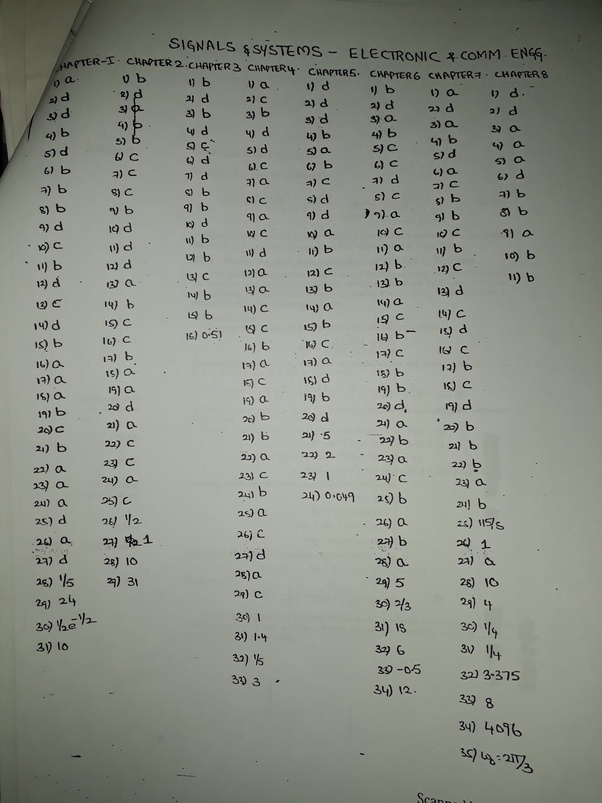 SIGNALS & SYSTEMS - ELECTRONIC & COMM ENGG.
CHAPTER-I
1) a
2) d
3) d
4) b
5) d
6) b
7) b
8) b
9) d
10) c
11) b
12) d
13) c
14) d
15) b
16) a
17) a
18) a
19) b
20) c
21) b
22) a
23) a
24) a
25) d
26) a
27) d
28) 1/5
29) 24
30) 1/2e-1/2
31) 10
CHAPTER 2
1) b
2) d
3) a
4) b
5) b
6) c
7) c
8) c
9) b
10) d
11) d
12) d
13) a
14) b
15) c
16) c
17) b
18) a
19) a
20) d
21) a
22) c
23) c
24) a
25) c
26) 1/2
27) 1
28) 10
29) 31
CHAPTER 3
1) b
2) d
3) b
4) d
5) c
6) d
7) d
8) b
9) b
10) d
11) b
12) b
13) c
14) b
15) b
16) 0.51
CHAPTER 4
1) a
2) c
3) b
4) d
5) d
6) c
7) a
8) c
9) a
10) c
11) d
12) a
13) a
14) c
15) c
16) b
17) a
18) c
19) a
20) b
21) b
22) a
23) c
24) b
25) a
26) c
27) d
28) a
29) c
30) 1
31) 1.4
32) 1/5
33) 3
CHAPTER 5.
1) d
2) d
3) d
4) b
5) a
6) b
7) c
8) d
9) d
10) a
11) b
12) c
13) b
14) a
15) b
16) c
17) a
18) d
19) b
20) d
21) .5
22) 2
23) 1
24) 0.049
CHAPTER 6
1) b
2) d
3) a
4) b
5) c
6) c
7) d
8) c
9) a
10) c
11) a
12) b
13) b
14) a
15) c
16) b
17) c
18) b
19) b
20) d
21) a
22) b
23) a
24) c
25) b
26) a
27) b
28) a
29) 5
30) 2/3
31) 18
32) 6
33) -0.5
34) 12.
CHAPTER 7.
1) a
2) d
3) a
4) b
5) d
6) a
7) c
8) b
9) b
10) c
11) b
12) c
13) d
14) c
15) d
16) c
17) b
18) c
19) d
20) b
21) b
22) b
23) a
24) b
25) 115/s
26) 1
27) a
28) 10
29) 4
30) 1/4
31) 1/4
32) 3.375
33) 8
34) 4096
35) = 2π/3
CHAPTER 8
1) d.
2) d
3) a
4) a
5) a
6) d
7) b
8) b
9) a
10) b
11) b